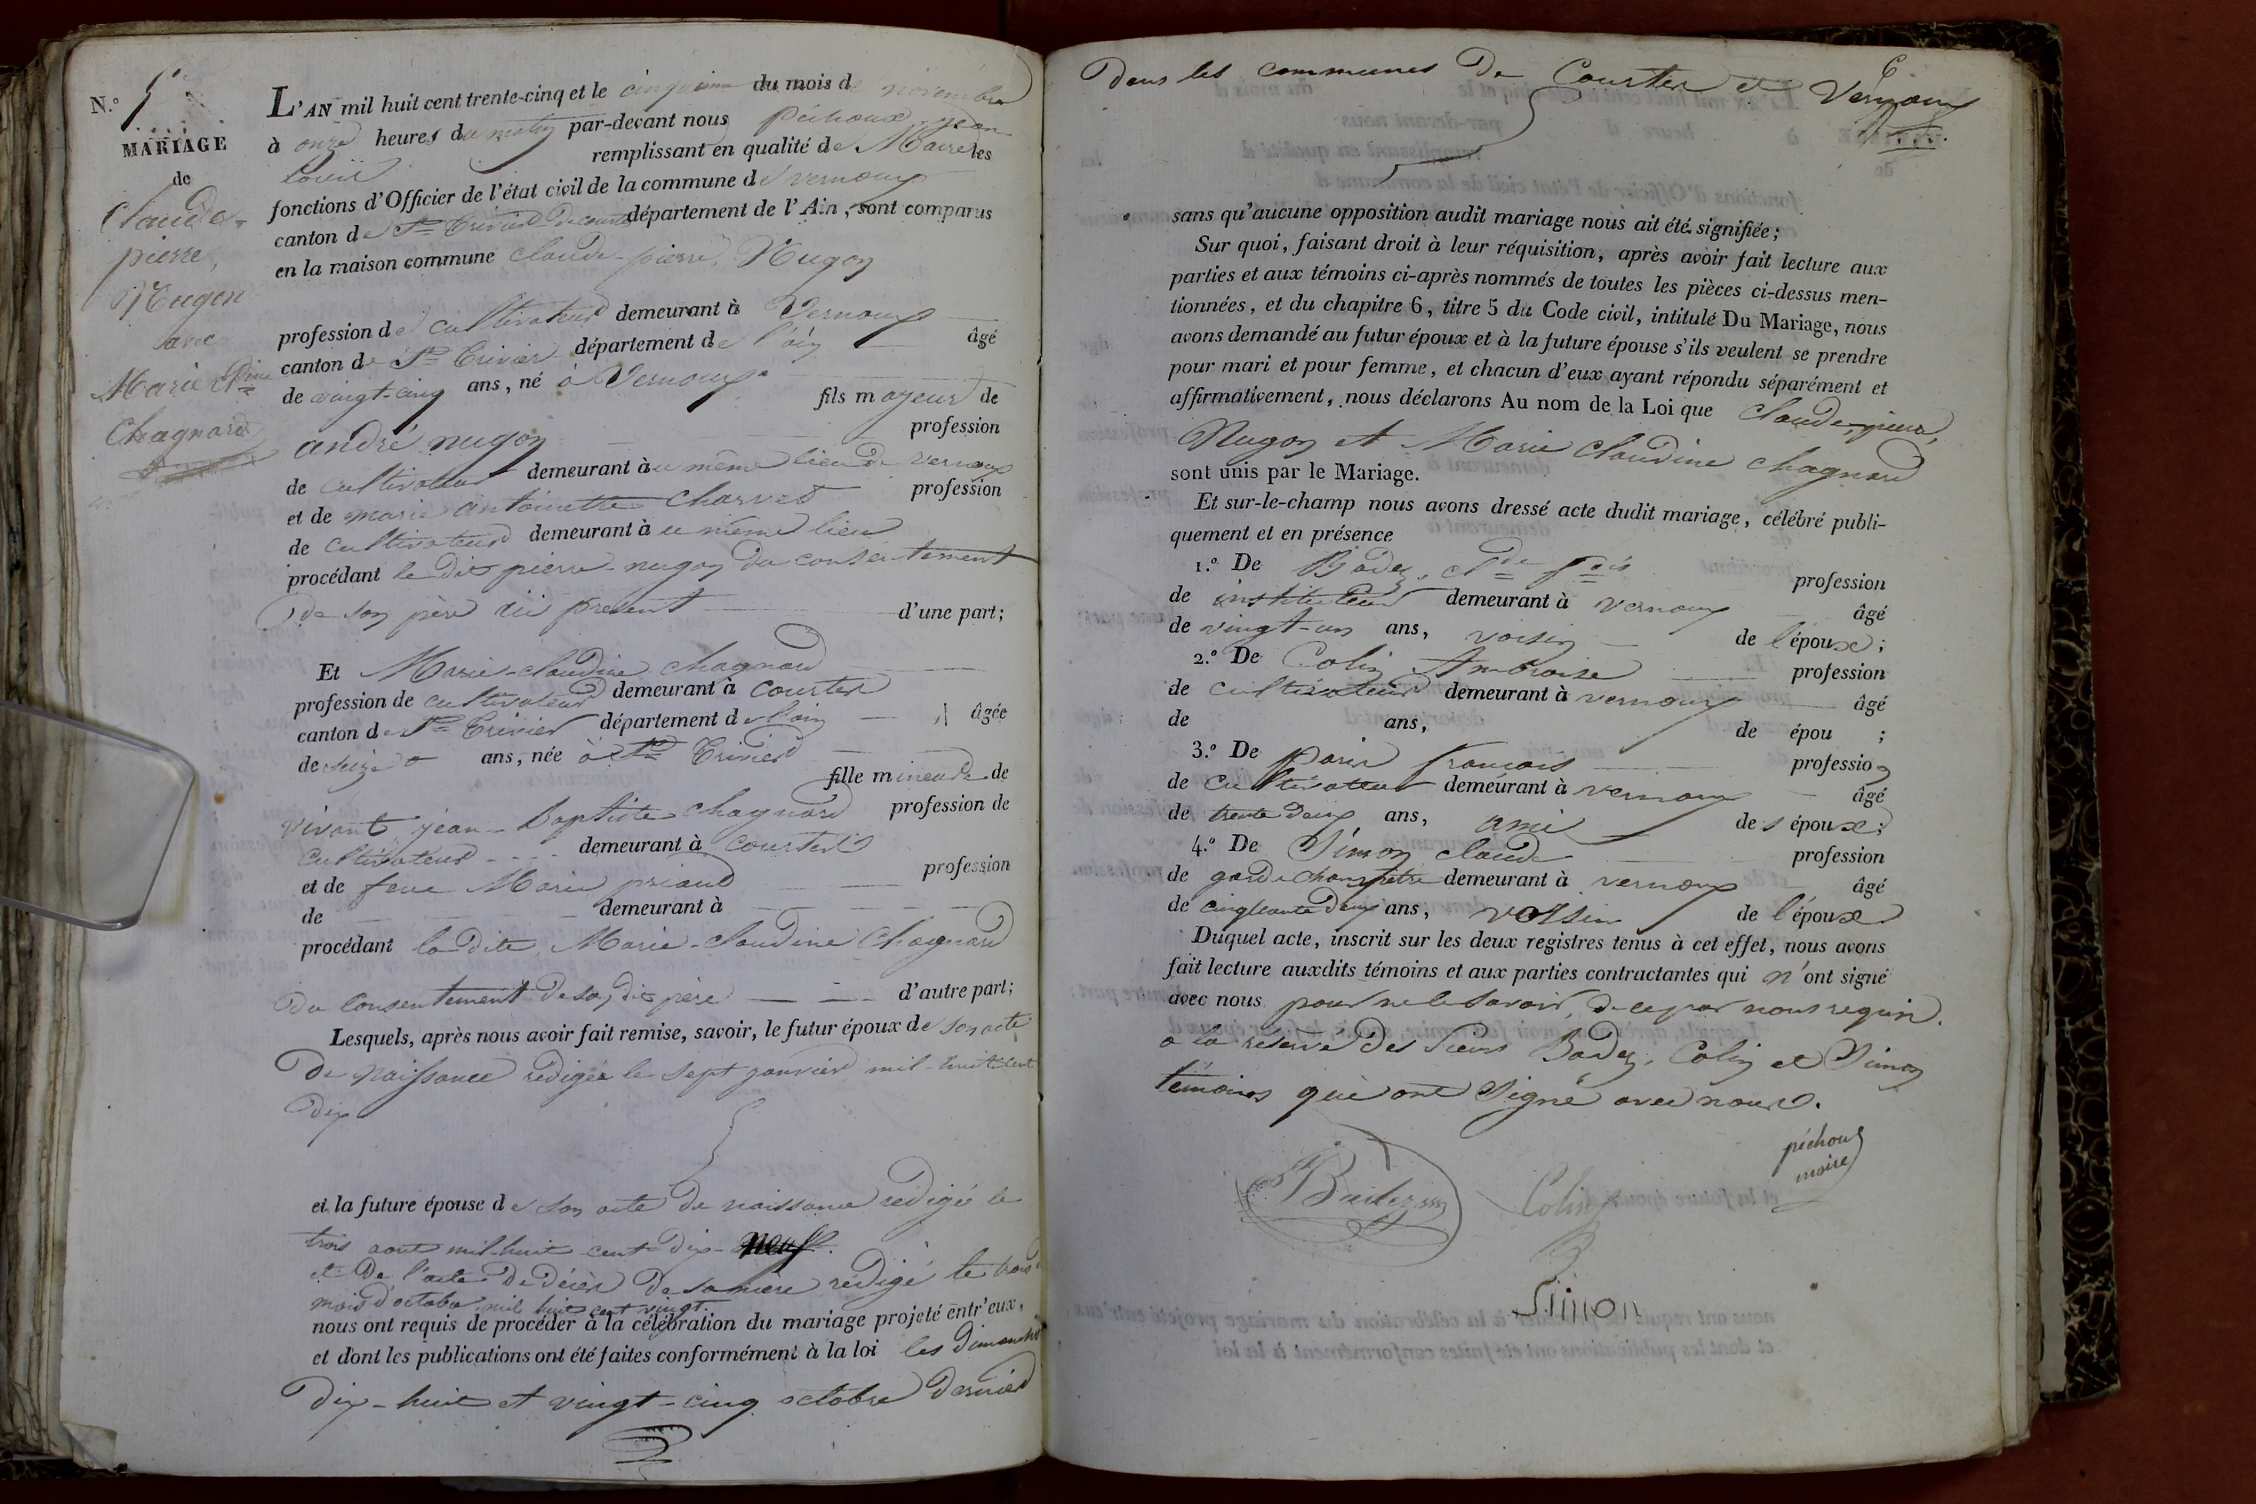 N.º 5
MARIAGE
de
Claude-
pierre,
Nugon
avec
Marie Cdine
Chagnard
L'AN mil huit cent trente-cinq et le cinquieme du mois de novembre
à onze heures du matin par-devant nous péchoux jean
louis remplissant en qualité de Maire les
fonctions d'Officier de l'état civil de la commune de vernoux
canton de St Trivier de courtes département de l'Ain, sont comparus
en la maison commune claude-pierre, Nugon
profession de cultivateur demeurant à Vernoux
canton de St Trivier département de l'ain âgé
de vingt-cinq ans, né à Vernoux
fils majeur de
andré nugon profession
de cultivateur demeurant à u même lieu de vernoux
et de marie antoinette Charvet profession
de cultivateur demeurant à u même lieu
procédant le dit pierre-nugon du consentement
de son père ici présent d'une part;
Et Marie-claudine chagnard
profession de cultivateur demeurant à courtes
canton de St Trivier département de l'ain âgée
de seize ans, née à St Trivier
fille mineure de
vivant jean-baptiste chagnard profession de
cultivateur demeurant à courtes
et de feue Marie priaud profession
de demeurant à
procédant la dite Marie-claudine Chagnard
du consentement de son dit père d'autre part;
Lesquels, après nous avoir fait remise, savoir, le futur époux de son acte
de naissance rédigée le sept janvier mil-huit cent
dix
et la future épouse de son acte de naissance redigé le
trois aout mil-huit-cent-dix-neuf.
et de l'acte de décès de sa mère rédigé le trois
mois d'octobre mil huit cent vingt.
nous ont requis de procéder à la célébration du mariage projeté entr'eux,
et dont les publications ont été faites conformément à la loi les dimanches
dix-huit et vingt-cinq octobre dernier
dans les communes de Courtes et Vernoux
sans qu'aucune opposition audit mariage nous ait été signifiée;
Sur quoi, faisant droit à leur réquisition, après avoir fait lecture aux
parties et aux témoins ci-après nommés de toutes les pièces ci-dessus men-
tionnées, et du chapitre 6, titre 5 du Code civil, intitulé Du Mariage, nous
avons demandé au futur époux et à la future épouse s'ils veulent se prendre
pour mari et pour femme, et chacun d'eux ayant répondu séparément et
affirmativement, nous déclarons Au nom de la Loi que claude, pierre,
Nugon et Marie Claudine chagnard
sont unis par le Mariage.
Et sur-le-champ nous avons dressé acte dudit mariage, célébré publi-
quement et en présence
1.º De Badez, Cde fois profession
de instituteur demeurant à vernoux âgé
de vingt-un ans, voisin de l'époux;
2.º De Colin Ambroise profession
de cultivateur demeurant à vernoux âgé
de ans, de épou ;
3.º De paris françois profession
de cultivateur demeurant à vernoux âgé
de trente deux ans, ami des époux;
4.º De Simon claude profession
de garde champêtre demeurant à vernoux âgé
de cinquante deux ans, voisin de l'époux
Duquel acte, inscrit sur les deux registres tenus à cet effet, nous avons
fait lecture auxdits témoins et aux parties contractantes qui n'ont signé
avec nous pour ne le savoir, de ce par nous requis.
a la reserve des sieurs Badez, Colin et Simon
témoins qui ont signé avec nous.
péchoux
maire
Badez
Colin
Simon